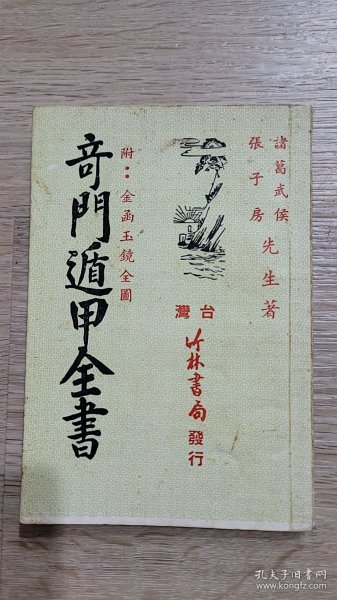 諸葛武侯
張子房
先生著
台灣
竹林書局
發行
附：金函玉鏡全圖
奇門遁甲全書
孔夫子旧书网
https://www.kongfz.com